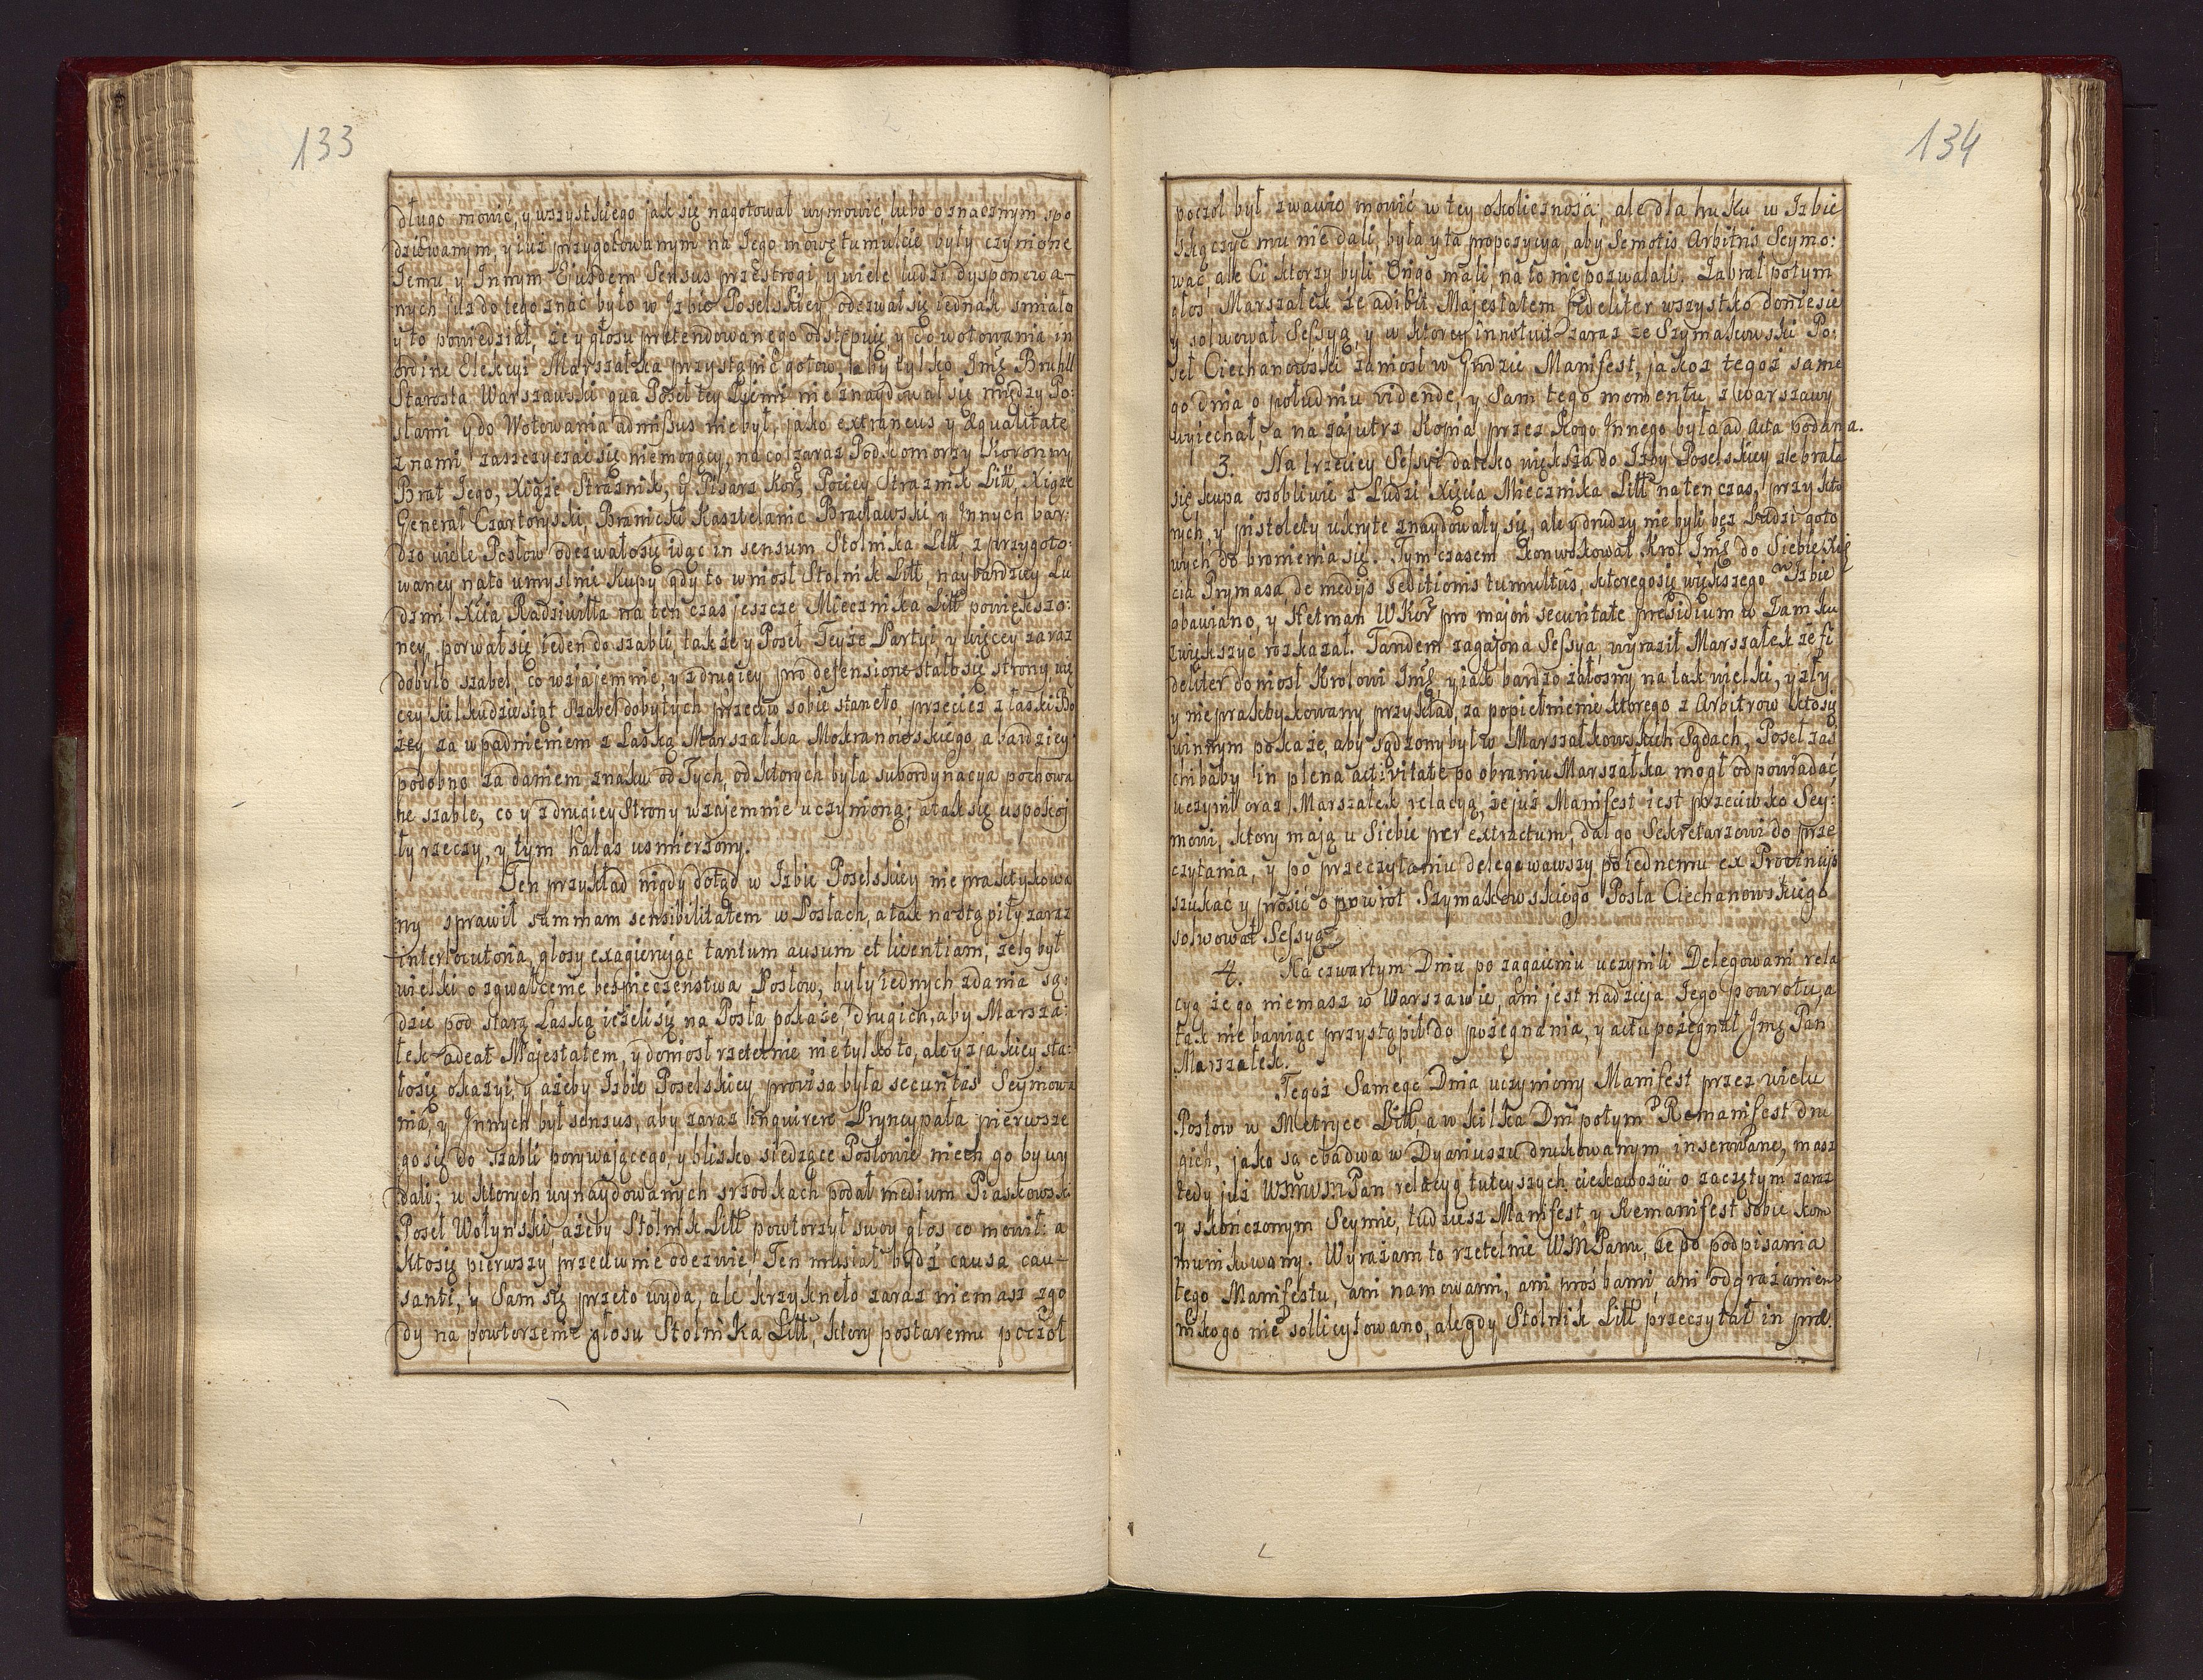 133
długo mowić, y wszystkiego jak się nagotował wymowić lubo o znacznym spo
dziewanym, y iuż przygotowanym na Jego mowę tumulcie, były czynione
Jemu, y Innym Ejusdem Sensus przestrogi, y wiele ludzi dysponowa-
nych już do tego znać było w Izbie Poselskiey, odezwał się iednak smiało
y to powiedział, że y głosu pretendowanego odstępuię, y do wotowania in
ordine Elekcyi Marszałka przystąpić gotow, aby tylko Jmść Bruhll
Starosta Warszawski qua Poseł tey Ziemi nie znaydował się między Po:
słami y do Wotowania admissus nie był, jako extraneus y Æqualitate
z nami zaszczyczać się niemogący, na co zaraz Podkomorzy Koronny
Brat Jego, Xiąże Strażnik, y Pisarz Kor, Pociey Straznik Litt, Xiąże
Generał Czartoryski, Branicki Kasztelanic Bracławski, y Innych bar:
dzo wiele Posłow odezwało się idąc in sensum Stolnika Litt, z przygoto:
waney na to umyslnie Kupy gdy to wniosł Stolnik Litt, naybardziey Lu
dzmi Xcia Radziwiłła na ten czas jeszcze Miecznika Litt powiększo:
ney, porwał się ieden do szabli, także y Poseł Teyże Partyi, y więcey zaraz
dobyło szabel, co wzajemnie, y z drugiey pro defensione stało się strony, wię
cey kilkudziesiąt Szabel dobytych przeciw sobie stanęło, przecież z łaski Bo
żey za wpadnieniem z Laską Marszałka Mokranowskiego, a bardziey
podobno za daniem znaku od Tych, od ktorych była subordynacya pochowa
ne szable, co y z drugiey Strony wzajemnie uczyniono; a tak się uspokoi
ły rzeczy, y tym hałas usmierzony.
Ten przykład nigdy dotąd w Izbie Poselskiey niepraktykowa
ny sprawił summam sensibilitatem w Posłach, a tak nastąpiły zaraz
interlocutoria, głosy exagieruiąc tantum ausum et licentiam, żelg był
wielki o zgwałcenie bespieczeństwa Posłow, były iednych zdania są:
dzic pod starą Laską ieżeli się na Posła pokaże, drugich, aby Marsza:
łek adeat Majestatem, y doniosł rzetelnie nie tylko to, ale y z jakiey sta:
ło się okazyi, y ażeby Izbie Poselskiey provisa była securitas Seymowa
nia, y Innych był sensus, aby zaraz inquirere Pryncypała pierwsze
go się do szabli porywającego, y blisko siedzące Posłowie niech go by wy
dali; w ktorych wynaydowanych srzodkach podał medium Piaskowski
Poseł Wołynski, ażeby Stolnik Litt powtorzył swoy głos co mowił: a
kto się pierwszy przeciw nie odezwie, Ten musiał bydź causa cau-
santi, y Sam się przeto wyda, ale krzyknęło zaraz niemasz zgo
dy na powtorzenie głosu Stolnika Litt, ktory postaremu począł
134
począł był zwawie mowić w tey okolicznosci, ale dla huku w Izbie
skączyć mu nie dali, była y ta propozycya, aby Semotis Arbitris Seymo:
wać, ale Ci ktorzy byli Origo mali, na to nie pozwalali. Zabrał potym
głos Marszałek że adibit Majestatem Fideliter wszystko doniesie
y solwował Sessyą, y w ktorey innotuit zaraz ze Szymakowski Po:
seł Ciechanowski zaniosł w Grodzie Manifest, jakoż tegoż same
go dnia o południu vidende, y Sam tego momentu z Warszawy
wyiechał, a na zajutrz Kopia przez Kogo Innego była ad Acta podana.
3. Na trzeciey Sessyi daleko większa do Izby Poselskiey zebrała
się kupa osobliwie z Ludzi Xięcia Miecznika Litt na ten czas, przy kto
rych, y pistolety ukryte znaydowały się, ale y drudzy nie byli bez Ludzi goto
wych do bronienia się. Tym czasem Konwokował Krol Jmść do Siebie Xię
cia Prymasa, de medijs seditionis tumultûs, ktorego się większego w Izbie
obawiano, y Hetman WKor pro majori securitate præsidium w Zamku
zwiększyć rozkazał. Tandem zagajona Sessya, wyraził Marszałek że fi
deliter doniosł Krolowi Jmść, y jak bardzo załosny na tak wielki, y zły
y nie praktykowany przykład, za popełnienie ktorego z Arbitrow kto się
winnym pokaże, aby sądzony był w Marszałkowskich Sądach, Poseł zaś
chibaby in plena activitate po obraniu Marszałka mogł odpowiadać
uczynił oraz Marszałek relacyą, że już Manifest iest przeciwko Sey:
mowi, ktory mają u Siebie per extractum, dał go Sekretarzowi do prze
czytania, y po przeczytaniu delegowawszy po iednemu ex Provincijs
szukać y prosić o powrot Szymakowskiego Posła Ciechanowskiego
solwował Sessyą.
4. Na czwartym Dniu po zagaieniu uczynili Delegowani rela
cyą że go niemasz w Warszawie, ani jest nadzieja Jego powrotu, a
tak nie bawiąc przystąpił do pożegnania, y actu pożegnał Jmć Pan
Marszałek.
Tegoż Samego Dnia uczyniony Manifest przez wielu
Posłow w Metryce Litt, a w kilka Dni potym Remanifest dru
gich, jako są obadwa w Dyariuszu drukowanym inserowane, masz
tedy już WMWMPan relacyą tuteyszych ciekawości o zaczętym zaraz
y skończonym Seymie, tudziesz Manifest, y Remanifest sobie kom
munikowany. Wyrażam to rzetelnie WMPanu, że po podpisania
tego Manifestu, ani namowami, ani prośbami, ani odgrażaniem
nikogo nie sollicytowano, ale gdy Stolnik Litt przeczytał in præ: